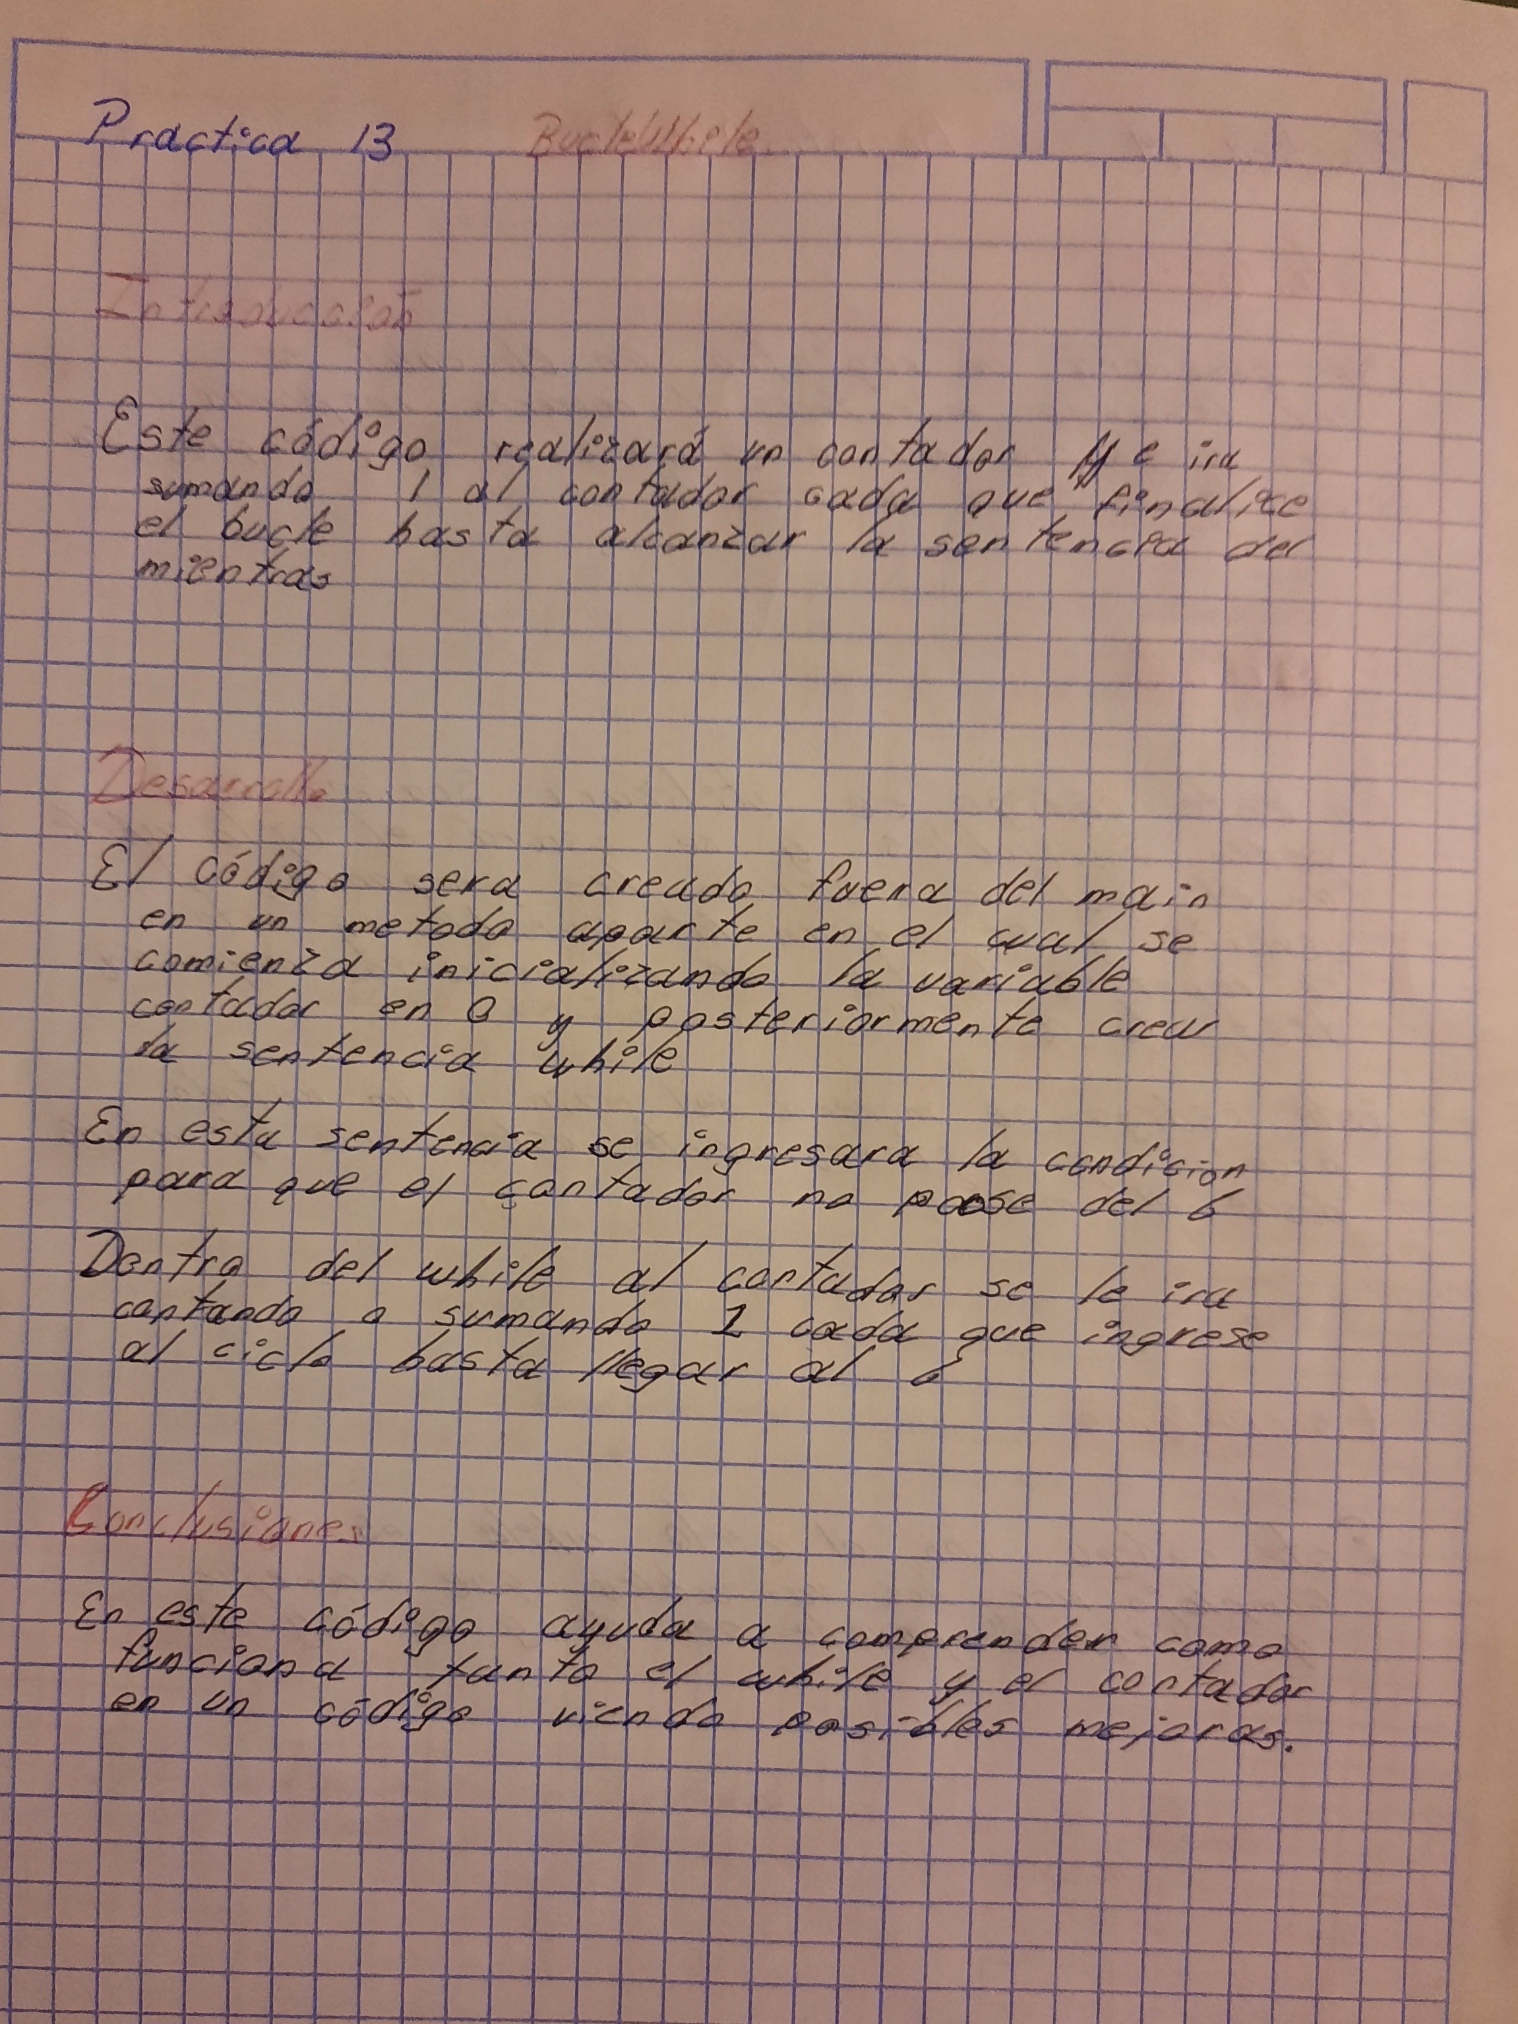 Practica 13 BucleWhile
Introducción
Este código realizará un contador y e ira
sumando 1 al contador cada que finalice
el bucle hasta alcanzar la sentencia del
mientras
Desarrollo
El código sera creado fuera del main
en un metodo aparte en el cual se
comienza inicializando la variable
contador en 0 y posteriormente crear
la sentencia while
En esta sentencia se ingresara la condicion
para que el contador no pase del 6
Dentro del while al contador se le ira
contando o sumando 1 cada que ingrese
al ciclo hasta llegar al 6
Conclusiones
En este código ayuda a comprender como
funciona tanto el while y el contador
en un código viendo posibles mejoras.